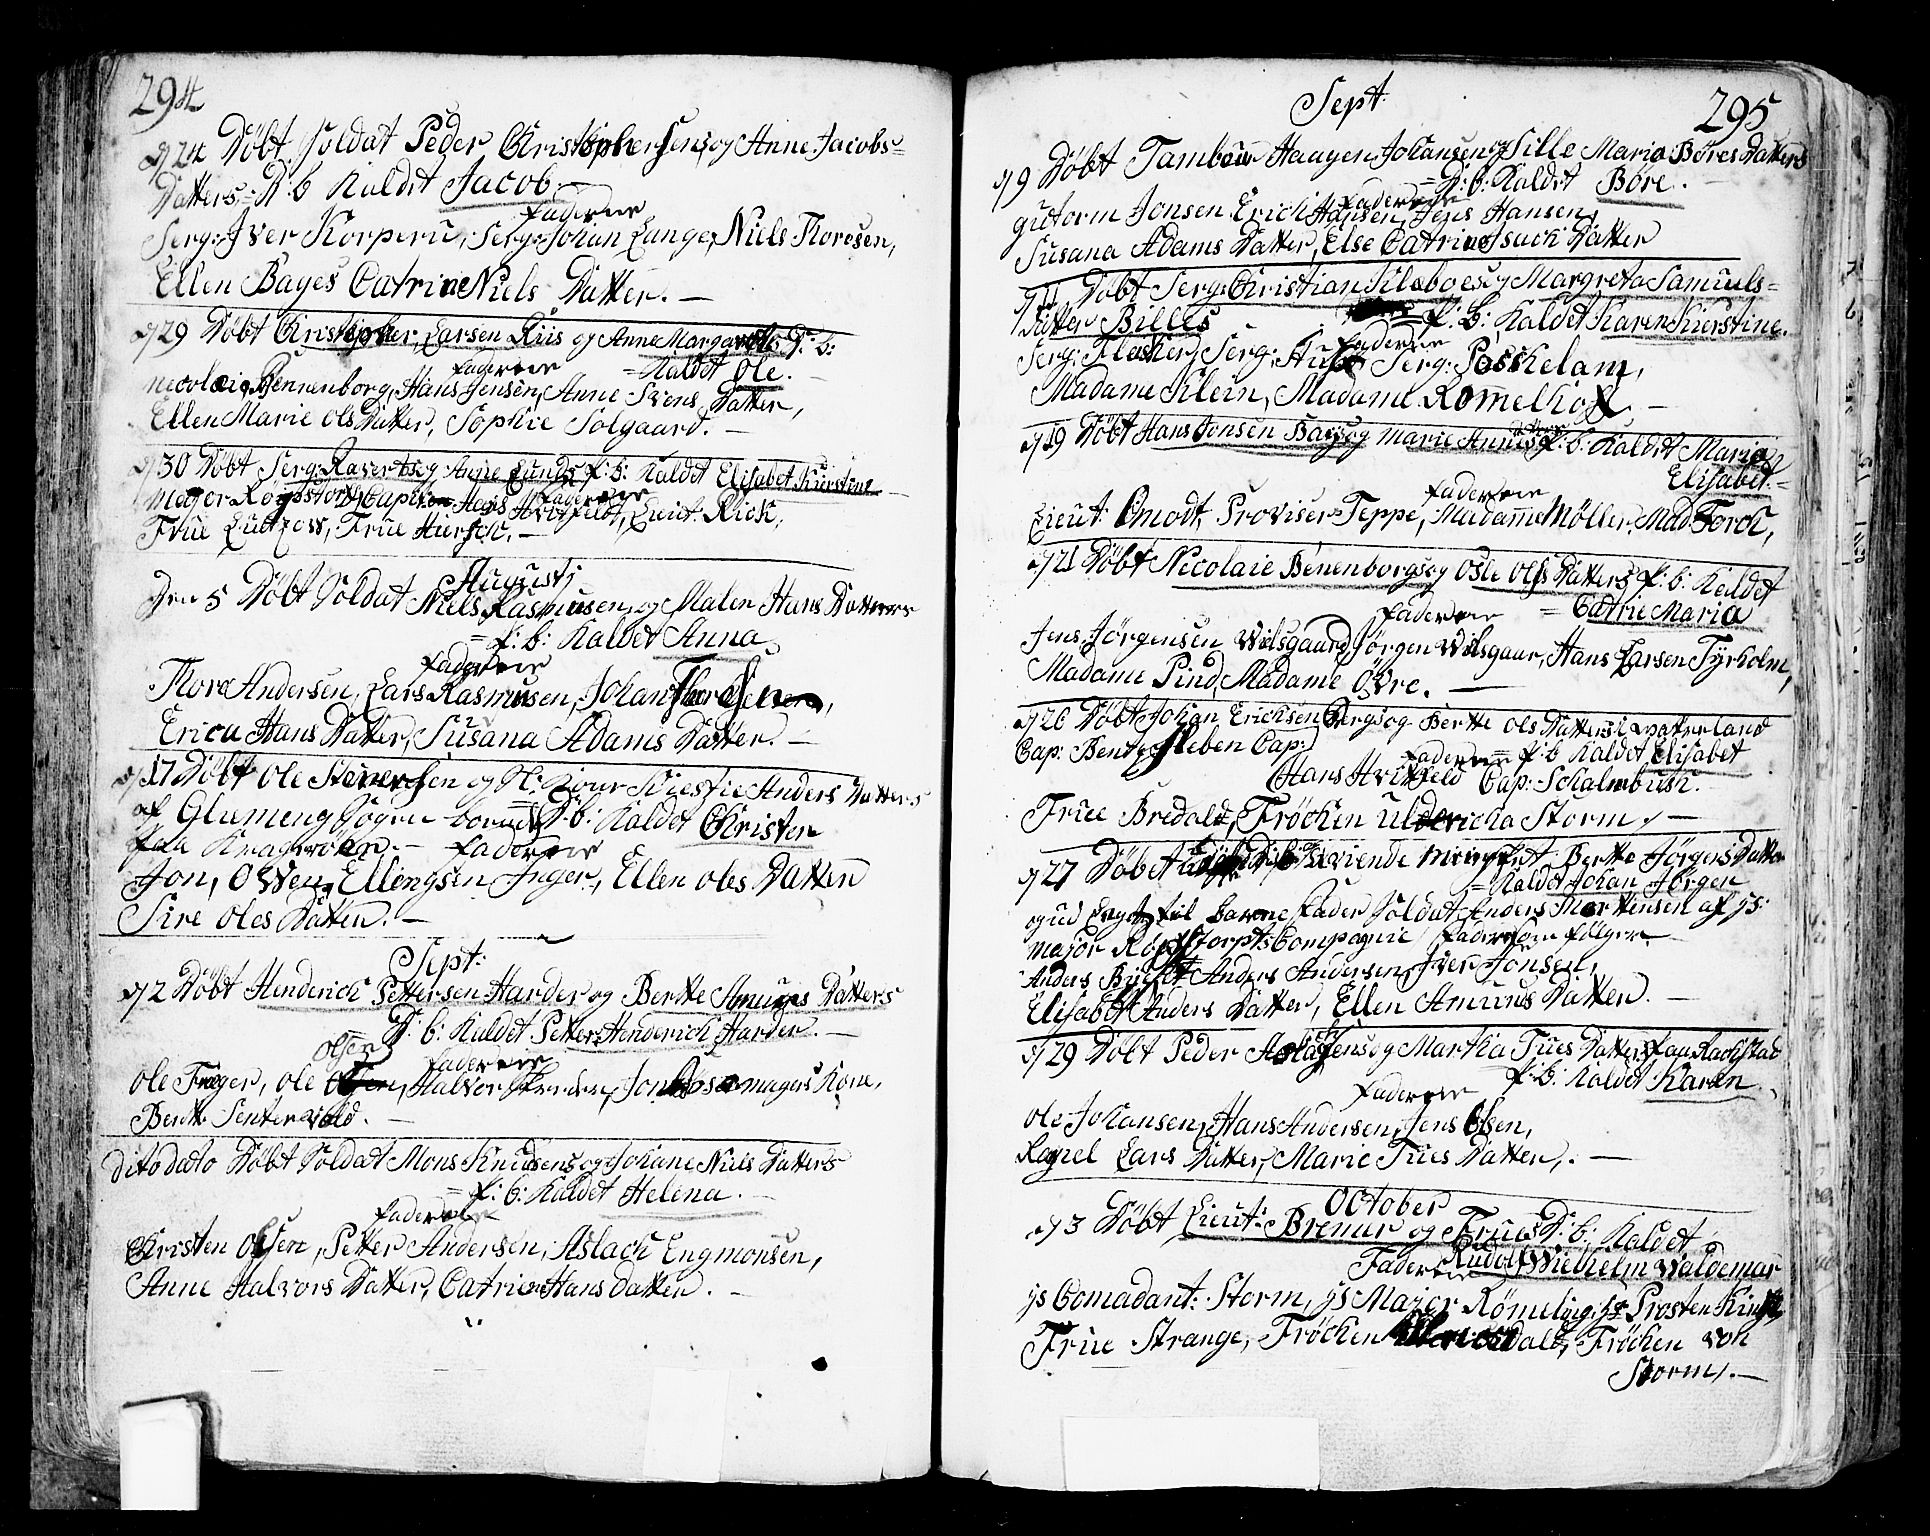 294
d 24 Döbt Soldat Peder Christophersens og Anne Jacobs=
Datters, D: b Kaldet Jacob
Faderne
Serg: Iver Korperu, Serg: Johan Lange, Niels Thoresen,
Ellen Bayes Catrine Niels Datter. —
d 29 Döbt Christopher Larsen Riis og Anne Margarete D: b:
Faderne = Kaldet Ole.
Nicolaie Bennenborg, Hans Jensen, Anne Svens Datter,
Ellen Marie Ols Datter, Sophie Solgaard. —
d 30 Döbt Serg: og Anne Lunds P: b: Kaldet Elisabet Kirstine
Faderne
Major Capt: Hans Hvitfeldt, Lieut: Rick,
Frue Lützow, Frue —
Augustj
Den 5 Döbt Soldat Niels Rasmusen og Malen Hans Datters
= P: b: Kaldet Anna.
Faderne
Thore Andersen, Lars Rasmusen, Johan
Erica Hans Datter, Susana Adams Datter. —
d 17 Döbt Ole og Anders Datters
af Sogn D: b: Kaldet Christen
paa Kragerøen. — Faderne
Jon, Owen, Ellengsen Inger, Ellen Oles Datter
Sire Oles Datter. —
Sept:
d 2 Döbt Henderich Pettersen Harder og Berthe Amunds Datters
D: b: Kaldet Petter Henderich Harder. —
Olsen Faderne
Ole Ole Halvor Jon magers Kone,
Berthe Sentervold. —
Dito dato Döbt Soldat Mons Knudsens og Johane Niels Datters
= P: b: Kaldet Helena. —
Faderne
Christen Olsen, Petter Andersen, Aslach Engmonsen,
Anne Halvors Datter, Catrine Hans Datter. —
Sept: 295
d 9 Döbt Tambour Haagen Johansen og Sille Maria Böres Datters
= D: b: Kaldet Böre. —
Faderne
Gutorm Jonsen Erich Hansen, Jens Hansen,
Susana Adams Datter, Else Catrine Isach Datter
d 11 Döbt Serg: Christian Klæboes og Margreta Samuels=
Datter Billes P: b: Kaldet Karen Kierstine.
Faderne
Serg: Flescher, Serg: Serg: Poschelam,
Madame Klein, Madame —
d 19 Döbt Hans Jonsen Bays og Marie P: b: Kaldet Maria
Faderne Elisabet. —
Lieut: Omodt, Proviser Teppe, Madame Möller, Mad: Torch,
d 21 Döbt Nicolaie Benenborgs og Osle Ols Datters P: b: Kaldet
Faderne = Catrie Maria
Jens Jörgensen Wilsgaard, Jörgen Wilsgaar, Hans Larsen Tyrholm,
Madame Pind, Madame Övre. —
d 26 Döbt Johan Erichsen Bergs og Berthe Ols Datters i Vaterland
Faderne = P: b Kaldet Elisabet
Cap: Bentzesleben Cap:
Hans Hvitfeld Cap: Schalmbush.
Frue Bredald, Fröchen Uldericha Storm, —
d 27 Döbt Berthe Jörgens Datter
= Kaldet Johan Jörgen
og ud til Barne Fader Soldat Anders Mortensen af Hs:
Major Compagnie Fadersom fölger —
Anders Anders Andersen, Iver Jonsen,
Elisabet Anders Datter, Ellen Amunds Datter. —
d 29 Döbt Peder Aslachsens og Martha Tues Datters paa Rachstad
Faderne P: b: Kaldet Karen
Ole Johansen, Hans Andersen, Jens Olsen,
Ragnel Lars Datter, Marie Tues Datter, . —
October
d 3 Döbt Lieut: Bremer og Frues D: b: Kaldet
Faderne Rudolf Wilhelm Waldemar
Hs Comadant: Storm, Hs Major Römeling, Hs Prosten
Frue Strange, Fröchen Fröchen von
Storm, . —